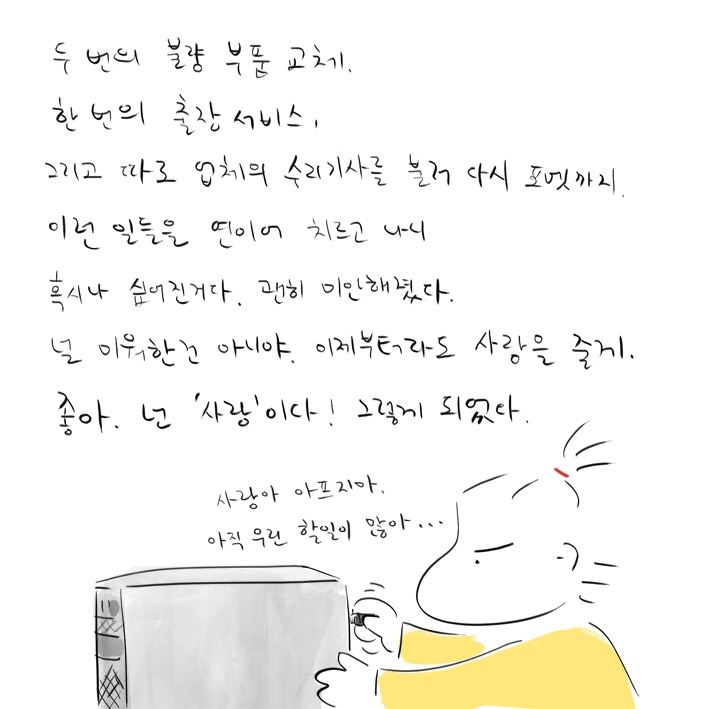 두 번의 불량 부품 교체.
한 번의 출장서비스,
그리고 따로 업체의 수리기사를 불러 다시 포멧까지.
이런 일들을 연이어 치르고 나니
혹시나 싶어진거다. 괜히 미안해졌다.
널 미워한건 아니야. 이제부터라도 사랑을 줄게.
좋아. 넌 '사랑'이다! 그렇게 되었다.
사랑아 아프지마.
아직 우린 할일이 많아...